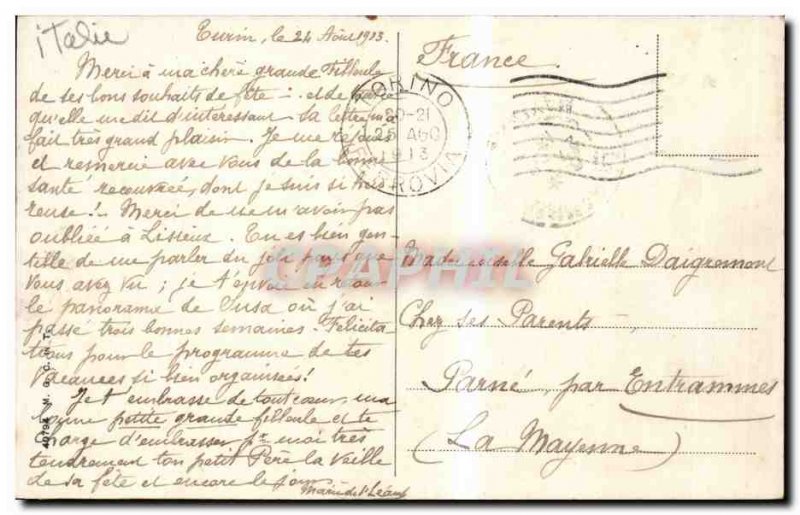 italie
Turin, le 24 Août 1913.
Merci à ma chère grande Filleule
de ses bons souhaits de fête : et de
qu'elle me dit d'intéressant. Sa lettre m'a
fait très grand plaisir. Je me réjouis
et remercie avec vous de la bonne
santé recouvrée, dont je suis si heu-
reuse! Merci de ne m'avoir pas
oubliée à Lisieux. Tu es bien gen-
tille de me parler du joli pays que
vous avez vu ; je t'envoie en retour
le panorama de Susa où j'ai
passé trois bonnes semaines. Félicita-
tions pour le programme de tes
vacances si bien organisées!
Je t'embrasse de tout cœur, ma
bonne petite grande filleule et te
charge d'embrasser pr moi très
tendrement ton petit Père la veille
de sa fête et encore le jour
Marie de St
TORINO
20-21
25 AGO
1913
FERROVIA
France
Mademoiselle Gabrielle Daigremont
Chez ses Parents
Parné, par Entrammes
(La Mayenne)
CPAPHIL